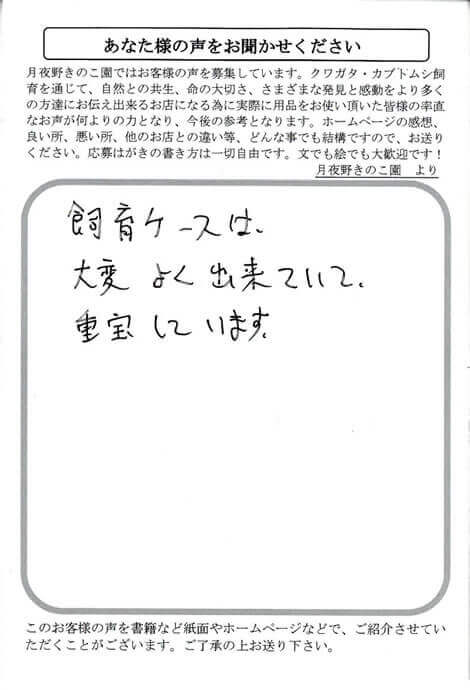 あなた様の声をお聞かせください
月夜野きのこ園ではお客様の声を募集しています。クワガタ・カブトムシ飼
育を通じて、自然との共生、命の大切さ、さまざまな発見と感動をより多く
の方達にお伝え出来るお店になる為に実際に用品をお使い頂いた皆様の率直
なお声が何よりの力となり、今後の参考となります。ホームページの感想、
良い所、悪い所、他のお店との違い等、どんな事でも結構ですので、お送り
ください。応募はがきの書き方は一切自由です。文でも絵でも大歓迎です！
月夜野きのこ園　より
飼育ケースは、
大変よく出来ていて、
重宝しています。
このお客様の声を書籍など紙面やホームページなどで、ご紹介させてい
ただくことがございます。ご了承の上お送り下さい。